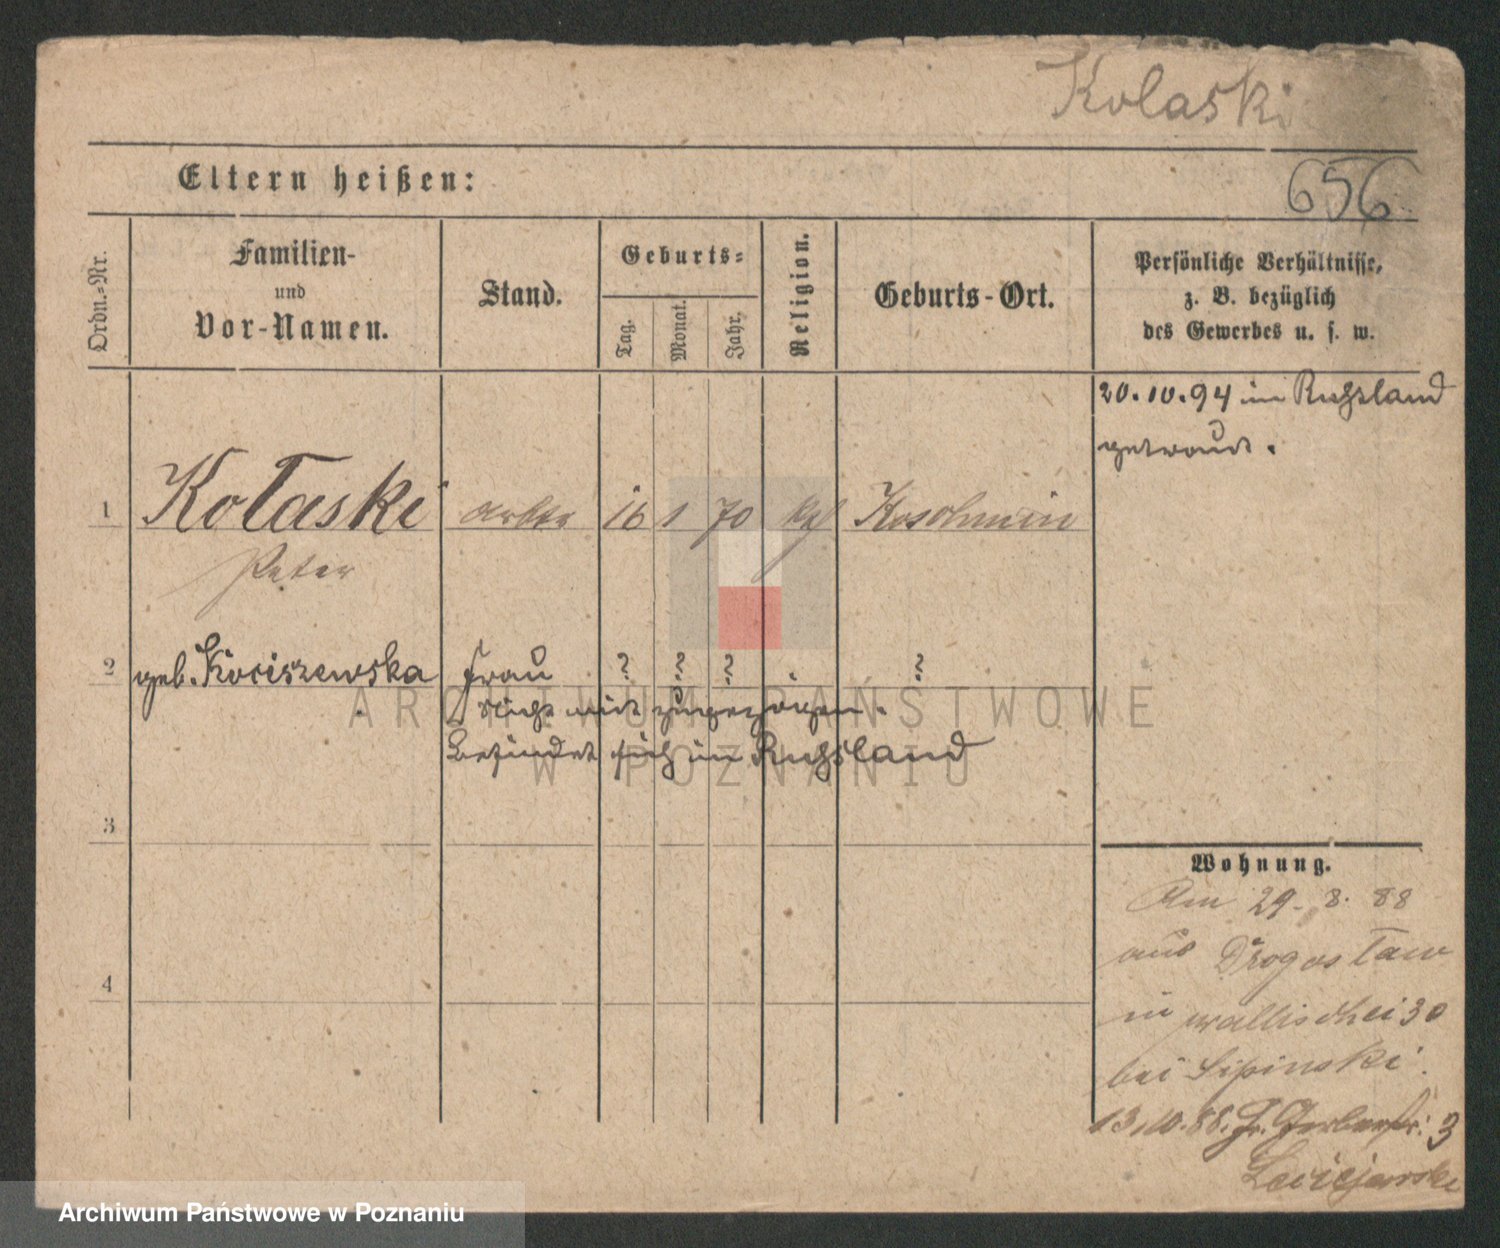 Kolaski
Eltern heißen:
656
Ordn.-Nr.
Familien-
und
Vor-Namen.
Stand.
Geburts-
Tag.
Monat.
Jahr.
Religion.
Geburts-Ort.
Persönliche Verhältnisse,
z. B. bezüglich
des Gewerbes u. s. w.
20.10.94 in Russland
getraut.
1 Kołaski 16 1 70 Koschmin
Peter
2 geb. Kociszewska Frau ? ? ? ?
nicht mit zugezogen.
Befindet sich in Russland
3
4
Wohnung.
Am 29. 8. 88
aus Drogosław
in Wallischei 30
bei Lipinski.
13.10.88. Gr. Gerberstr. 3
ARCHIWUM PAŃSTWOWE
W POZNANIU
Archiwum Państwowe w Poznaniu